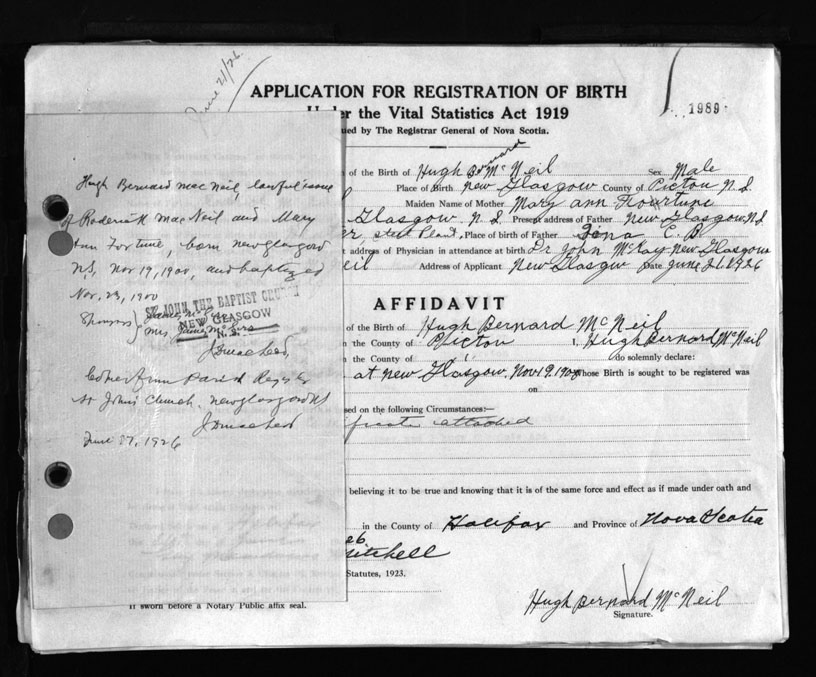 June 21/26
APPLICATION FOR REGISTRATION OF BIRTH
Under the Vital Statistics Act 1919
ued by The Registrar General of Nova Scotia.
1989
of the Birth of Hugh Bernard McNeil Sex Male
Place of Birth New Glasgow County of Pictou N.S.
Maiden Name of Mother Mary Ann Foortune
Glasgow N.S. Present address of Father New Glasgow N.S
er, steel Plant, Place of birth of Father Iona C.B.
t address of Physician in attendance at birth Dr John McKay New Glasgow
eil Address of Applicant New Glasgow Date June 21. 1926
AFFIDAVIT
of the Birth of Hugh Bernard McNeil
n the County of Pictou I, Hugh Bernard McNeil
in the County of do solemnly declare:
at New Glasgow. Nov 19. 1900 whose Birth is sought to be registered was
on
sed on the following Circumstances:—
ificate attached
believing it to be true and knowing that it is of the same force and effect as if made under oath and
in the County of Halifax and Province of Nova Scotia
eb
Mitchell
Statutes, 1923.
If sworn before a Notary Public affix seal.
Hugh Bernard McNeil
Signature.
Hugh Bernard MacNeil, lawful issue
of Roderick MacNeil and Mary
Ann Fortune, born New Glasgow
NS, Nov 19, 1900, and baptized
Nov. 23, 1900
ST. JOHN THE BAPTIST CHURCH
NEW GLASGOW
N.S.
Sponsors } James
Mrs James
J D MacLeod
Copied from Parish Register
St John's Church, New Glasgow NS
J D MacLeod
June 27, 1926